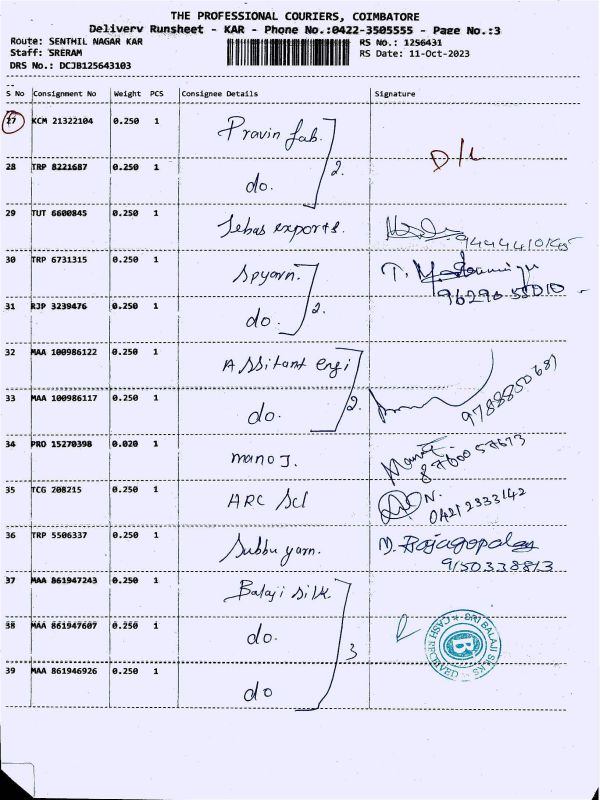 THE PROFESSIONAL COURIERS, COIMBATORE
Delivery Runsheet - KAR - Phone No.:0422-3505555 - Page No.:3
Route: SENTHIL NAGAR KAR RS No.: 1256431
Staff: SRERAM RS Date: 11-Oct-2023
DRS No.: DCJB125643103
S No Consignment No Weight PCS Consignee Details Signature
27 KCM 21322104 0.250 1 Pravin fab.
D/L
28 TRP 8221687 0.250 1 do. 2.
29 TUT 6600845 0.250 1 Jebas exports.
30 TRP 6731315 0.250 1 Spyarn. T.
31 RJP 3239476 0.250 1 do. 2.
32 MAA 100986122 0.250 1 Assitant engi
33 MAA 100986117 0.250 1 do. 2.
34 PRO 15270398 0.020 1 manoj.
35 TCG 208215 0.250 1 ARC Scl N.
0421 2333142
36 TRP 5506337 0.250 1 Subbu yarn. M. Rajagopalan
9150338813
37 MAA 861947243 0.250 1 Balaji silk.
38 MAA 861947607 0.250 1 do. 3
SRI BALAJI SILKS
B
39 MAA 861946926 0.250 1 do